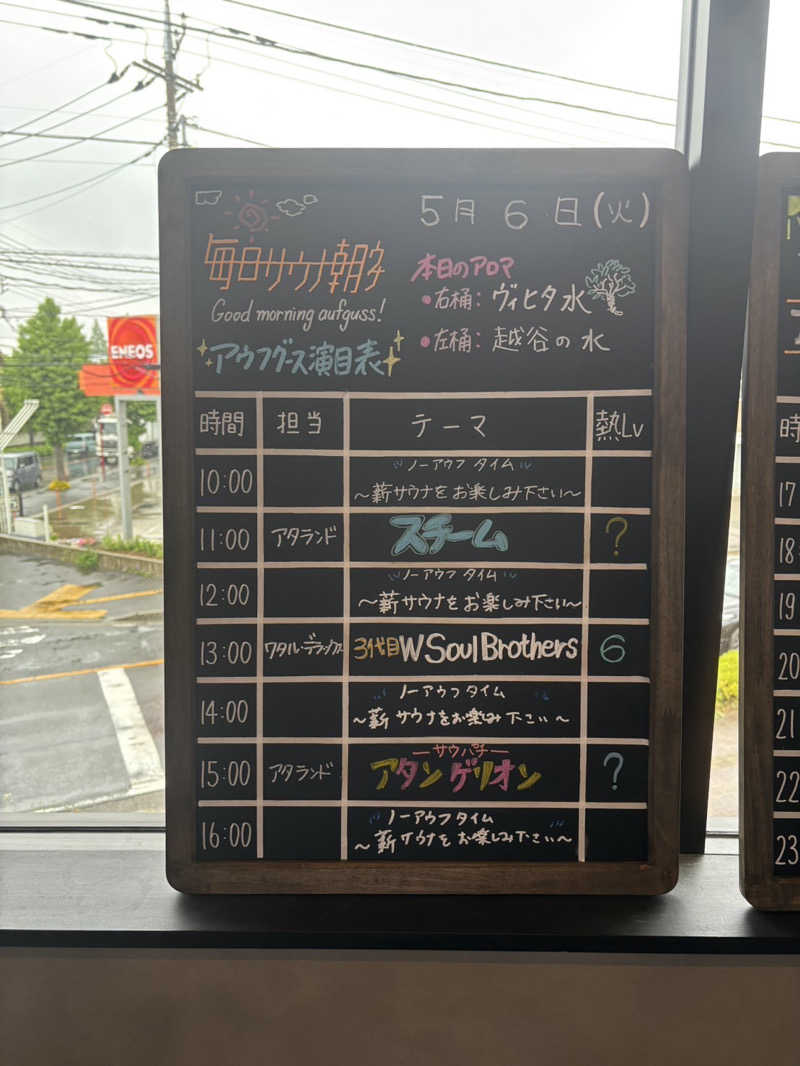 5月6日(火)
毎日サウナ朝多
Good morning aufguss!
アウフグース演目表
本日のアロマ
•右桶: ヴィヒタ水
•左桶: 越谷の水
ENEOS
時間 担当 テーマ 熱Lv
10:00 ノーアウフタイム
〜薪サウナをお楽しみ下さい〜
11:00 アタランド スチーム ?
12:00 ノーアウフタイム
〜薪サウナをお楽しみ下さい〜
13:00 ワタル・デラックス 3代目W Soul Brothers 6
14:00 ノーアウフタイム
〜薪サウナをお楽み下さい〜
15:00 アタランド ーサウパチー
アタンゲリオン ?
16:00 ノーアウフタイム
〜薪サウナをお楽しみ下さい〜
時
17
18
19
20
21
22
23